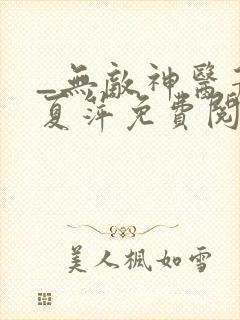 _無敵神醫
夏萍免費閱
美人楓如雪